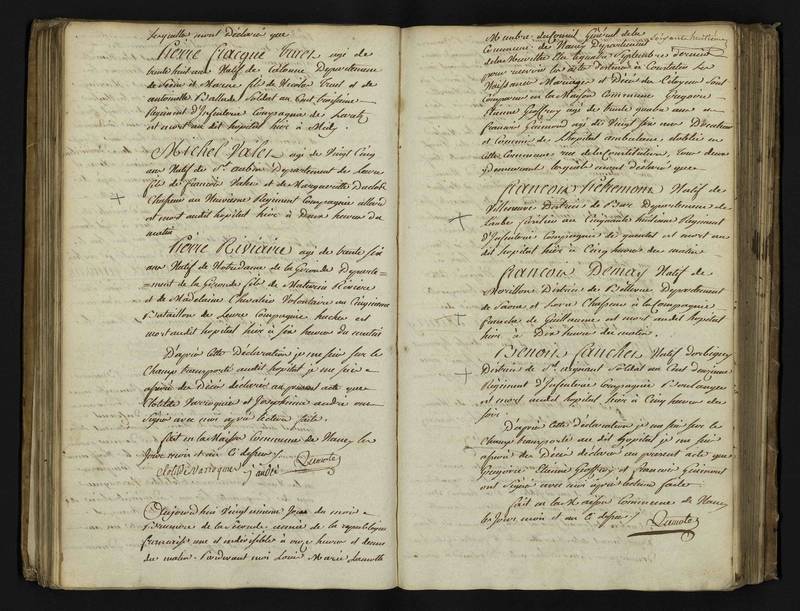 lesquelles m'ont déclaré que
Pierre Jacque Varet agé de
trente huit ans Natif de Département
de Seine et Marne fils de Nicolas Varet et de
Antoinette Ballade Soldat au Cent troisieme
Regiment d'Infanterie Compagnie de
est mort au dit hopital hier à Midy.
Michel Valet agé de Vingt Cinq
ans Natif de St. aubin Département de
fils de françois Valet et de Margueritte
Chasseur au Neuvieme Régiment Compagnie allard
est mort audit hopital hier à Deux heures du
matin
Pierre Riviaire agé de trente six
ans Natif de Notredame de la Gironde Departe=
=ment de la Gironde fils de Maturin Riviere
et de Madelaine Chevalier Volontaire au Cinquieme
Bataillon de Compagnie
mort audit hopital hier à six heures du matin
D'après Cette Déclaration je me suis sur le
Champ transporté audit hopital je me suis
assuré du Décès déclaré au présent acte que
Clotilde Varroquier et Josephine andré ont
Signé avec moi après lecture faite.
fait en la Maison Commune de Nancy les
Jour mois et an Ci dessus
Clotilde Varroquier j andré Lamotte
Aujourd'hui Vingt neuvieme Jour du mois
Brumaire de la seconde année de la republique
française une et indivisible à onze heures et demie
du matin Pardevant moi Louis Marie Lamotte
Soixante huitieme
Membre du Conseil Général de la
Commune de Nancy Département
de la Meurthe Elu Septembre dernier
pour recevoir les actes destinés à Constater les
Naissances Mariages et Décès des Citoyens Sont
Comparus en la Maison Commune Gregoire
Etienne Geoffroy agé de trente quatre ans et
francois Guimont agé de Vingt six ans Directeur
et Commis de L'hopital ambulant établis en
Cette Commune rue de la Constitution, tous deux
Demeurant lesquels m'ont déclaré que
françois Natif de
Villenauxe District de Département de
Laube fusilier au Cinquante huitieme Régiment
d'Infanterie Compagnie de est mort au
dit hopital hier à Cinq heures du matin
françois Demay Natif de
Morillon District de Bellevue Département
de Saône et Loire Chasseur à la Compagnie
franche de Guillaume est mort audit hopital
hier à Dix heures du matin.
Benoit fauchet Natif
District de St. Soldat au Cent
Régiment d'Infanterie Compagnie Boulanger
est mort audit hopital hier à Cinq heures du
soir
D'après Cette déclaration je me suis sur le
Champ transporté au dit hopital je me suis
assuré du Décès déclaré au présent acte que
Gregoire Etienne Geoffroy et francois Guimont
ont Signé avec moi après lecture faite
fait en la Maison Commune de Nancy
les Jour mois et an Ci dessus
Lamotte